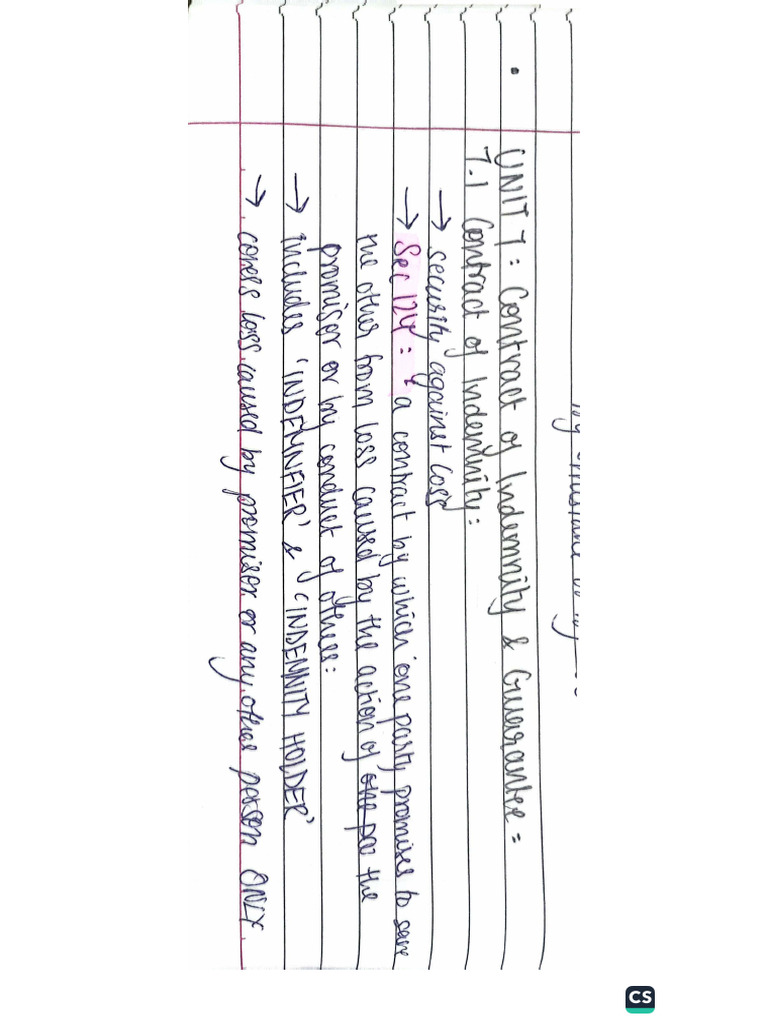 UNIT 7: Contract of Indemnity & Guarantee =
7.1 Contract of Indemnity:
→ security against loss
→ Sec 124: a contract by which one party promises to save
the other from loss caused by the action of one par the
promisor or by conduct of others:
→ includes 'INDEMNFIER' & 'INDEMNITY HOLDER'
→ covers loss caused by promisor or any other person ONLY.
CS